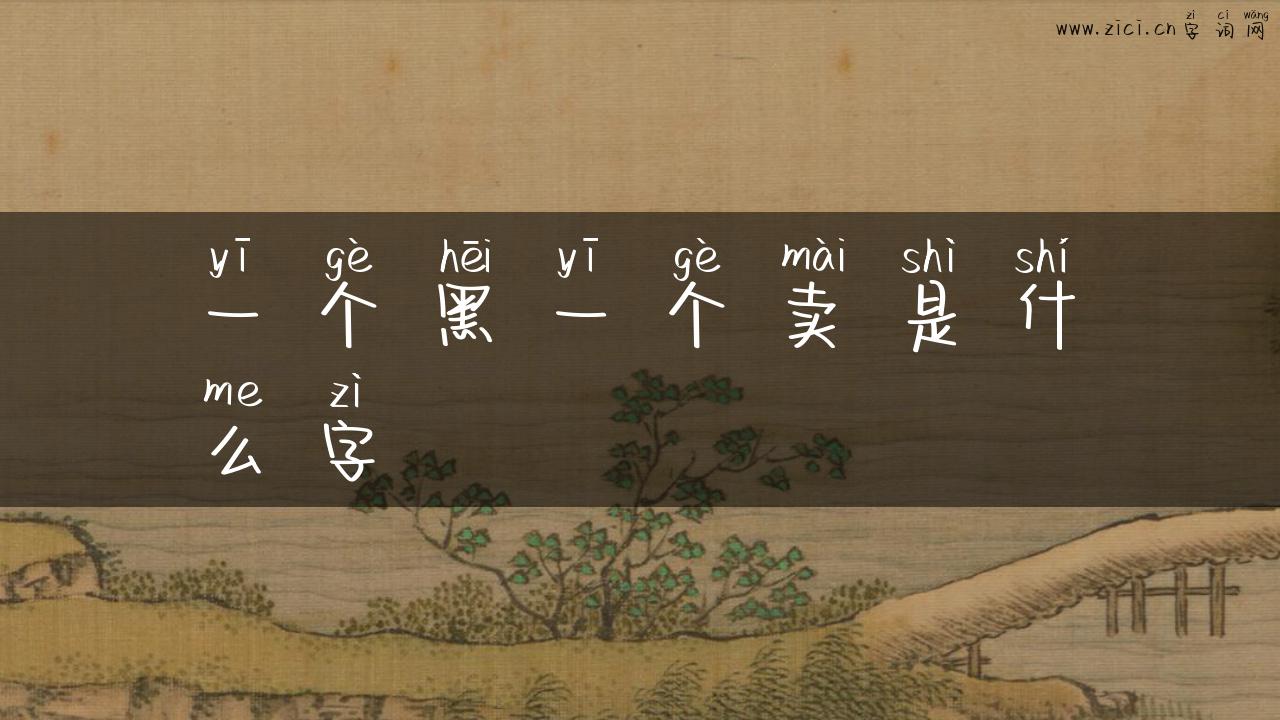 zì cí wǎng
www.zici.cn 字 词 网
yī gè hēi yī gè mài shì shí
一 个 黑 一 个 卖 是 什
me zì
么 字